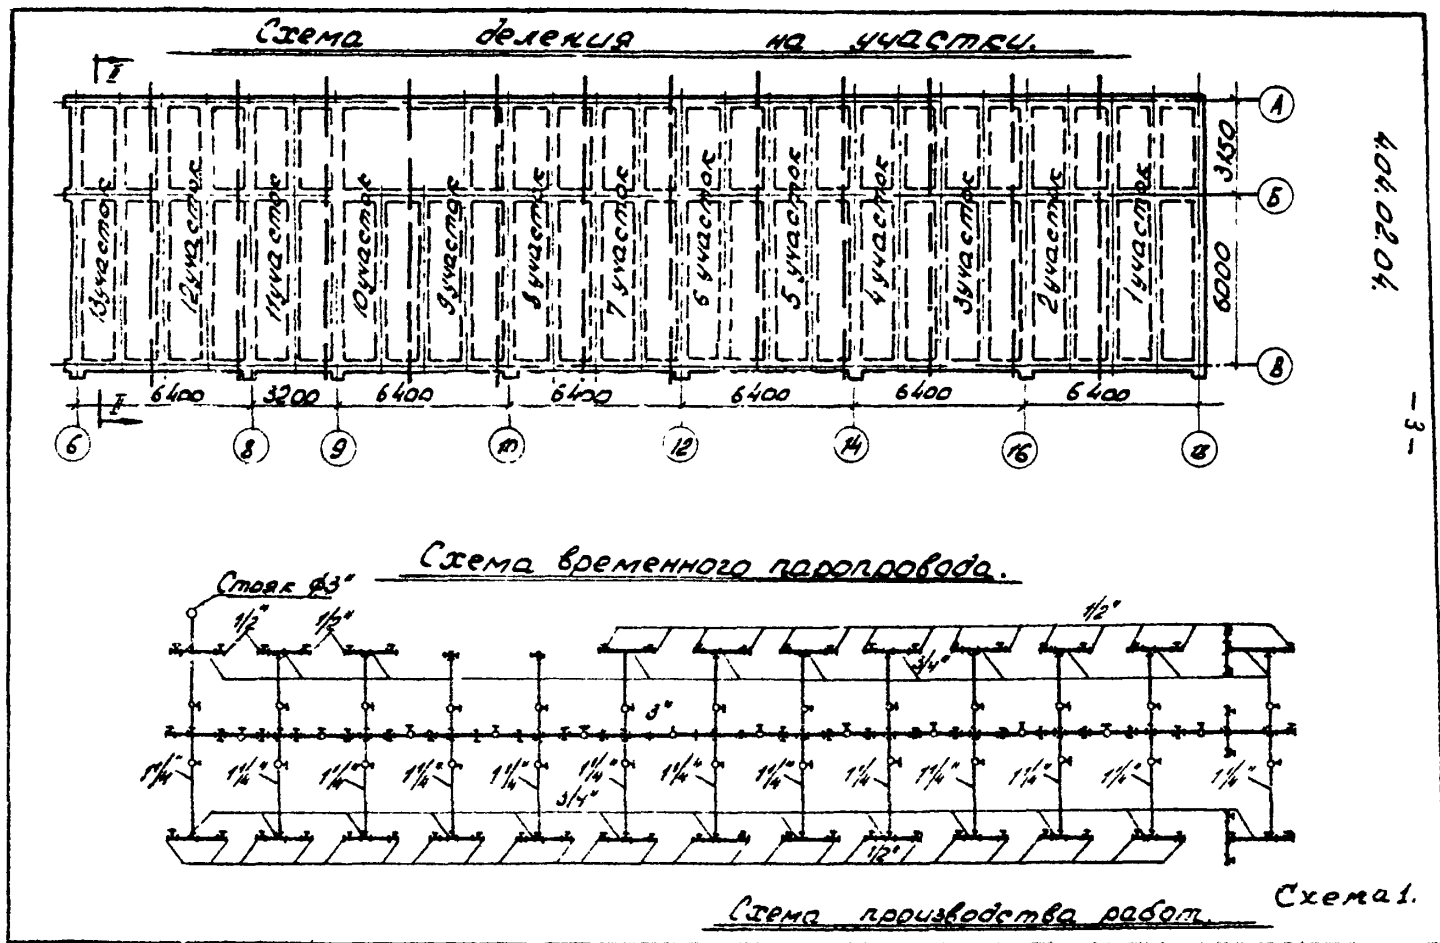 Схема деления на участки.
II
А
3150
Б
6000
В
13 участок
12 участок
11 участок
10 участок
9 участок
8 участок
7 участок
6 участок
5 участок
4 участок
3 участок
2 участок
1 участок
II
6400 3200 6400 6400 6400 6400 6400
6 8 9 10 12 14 16 18
404.02.04.
-3-
Схема временного паропровода.
Стояк ф3"
1/2" 1/2" 1/2"
3/4"
3"
1 1/4" 1 1/4" 1 1/4" 1 1/4" 1 1/4" 1 1/4" 1 1/4" 1 1/4" 1 1/4" 1 1/4" 1 1/4" 1 1/4" 1 1/4"
3/4"
1/2"
Схема 1.
Схема производства работ.